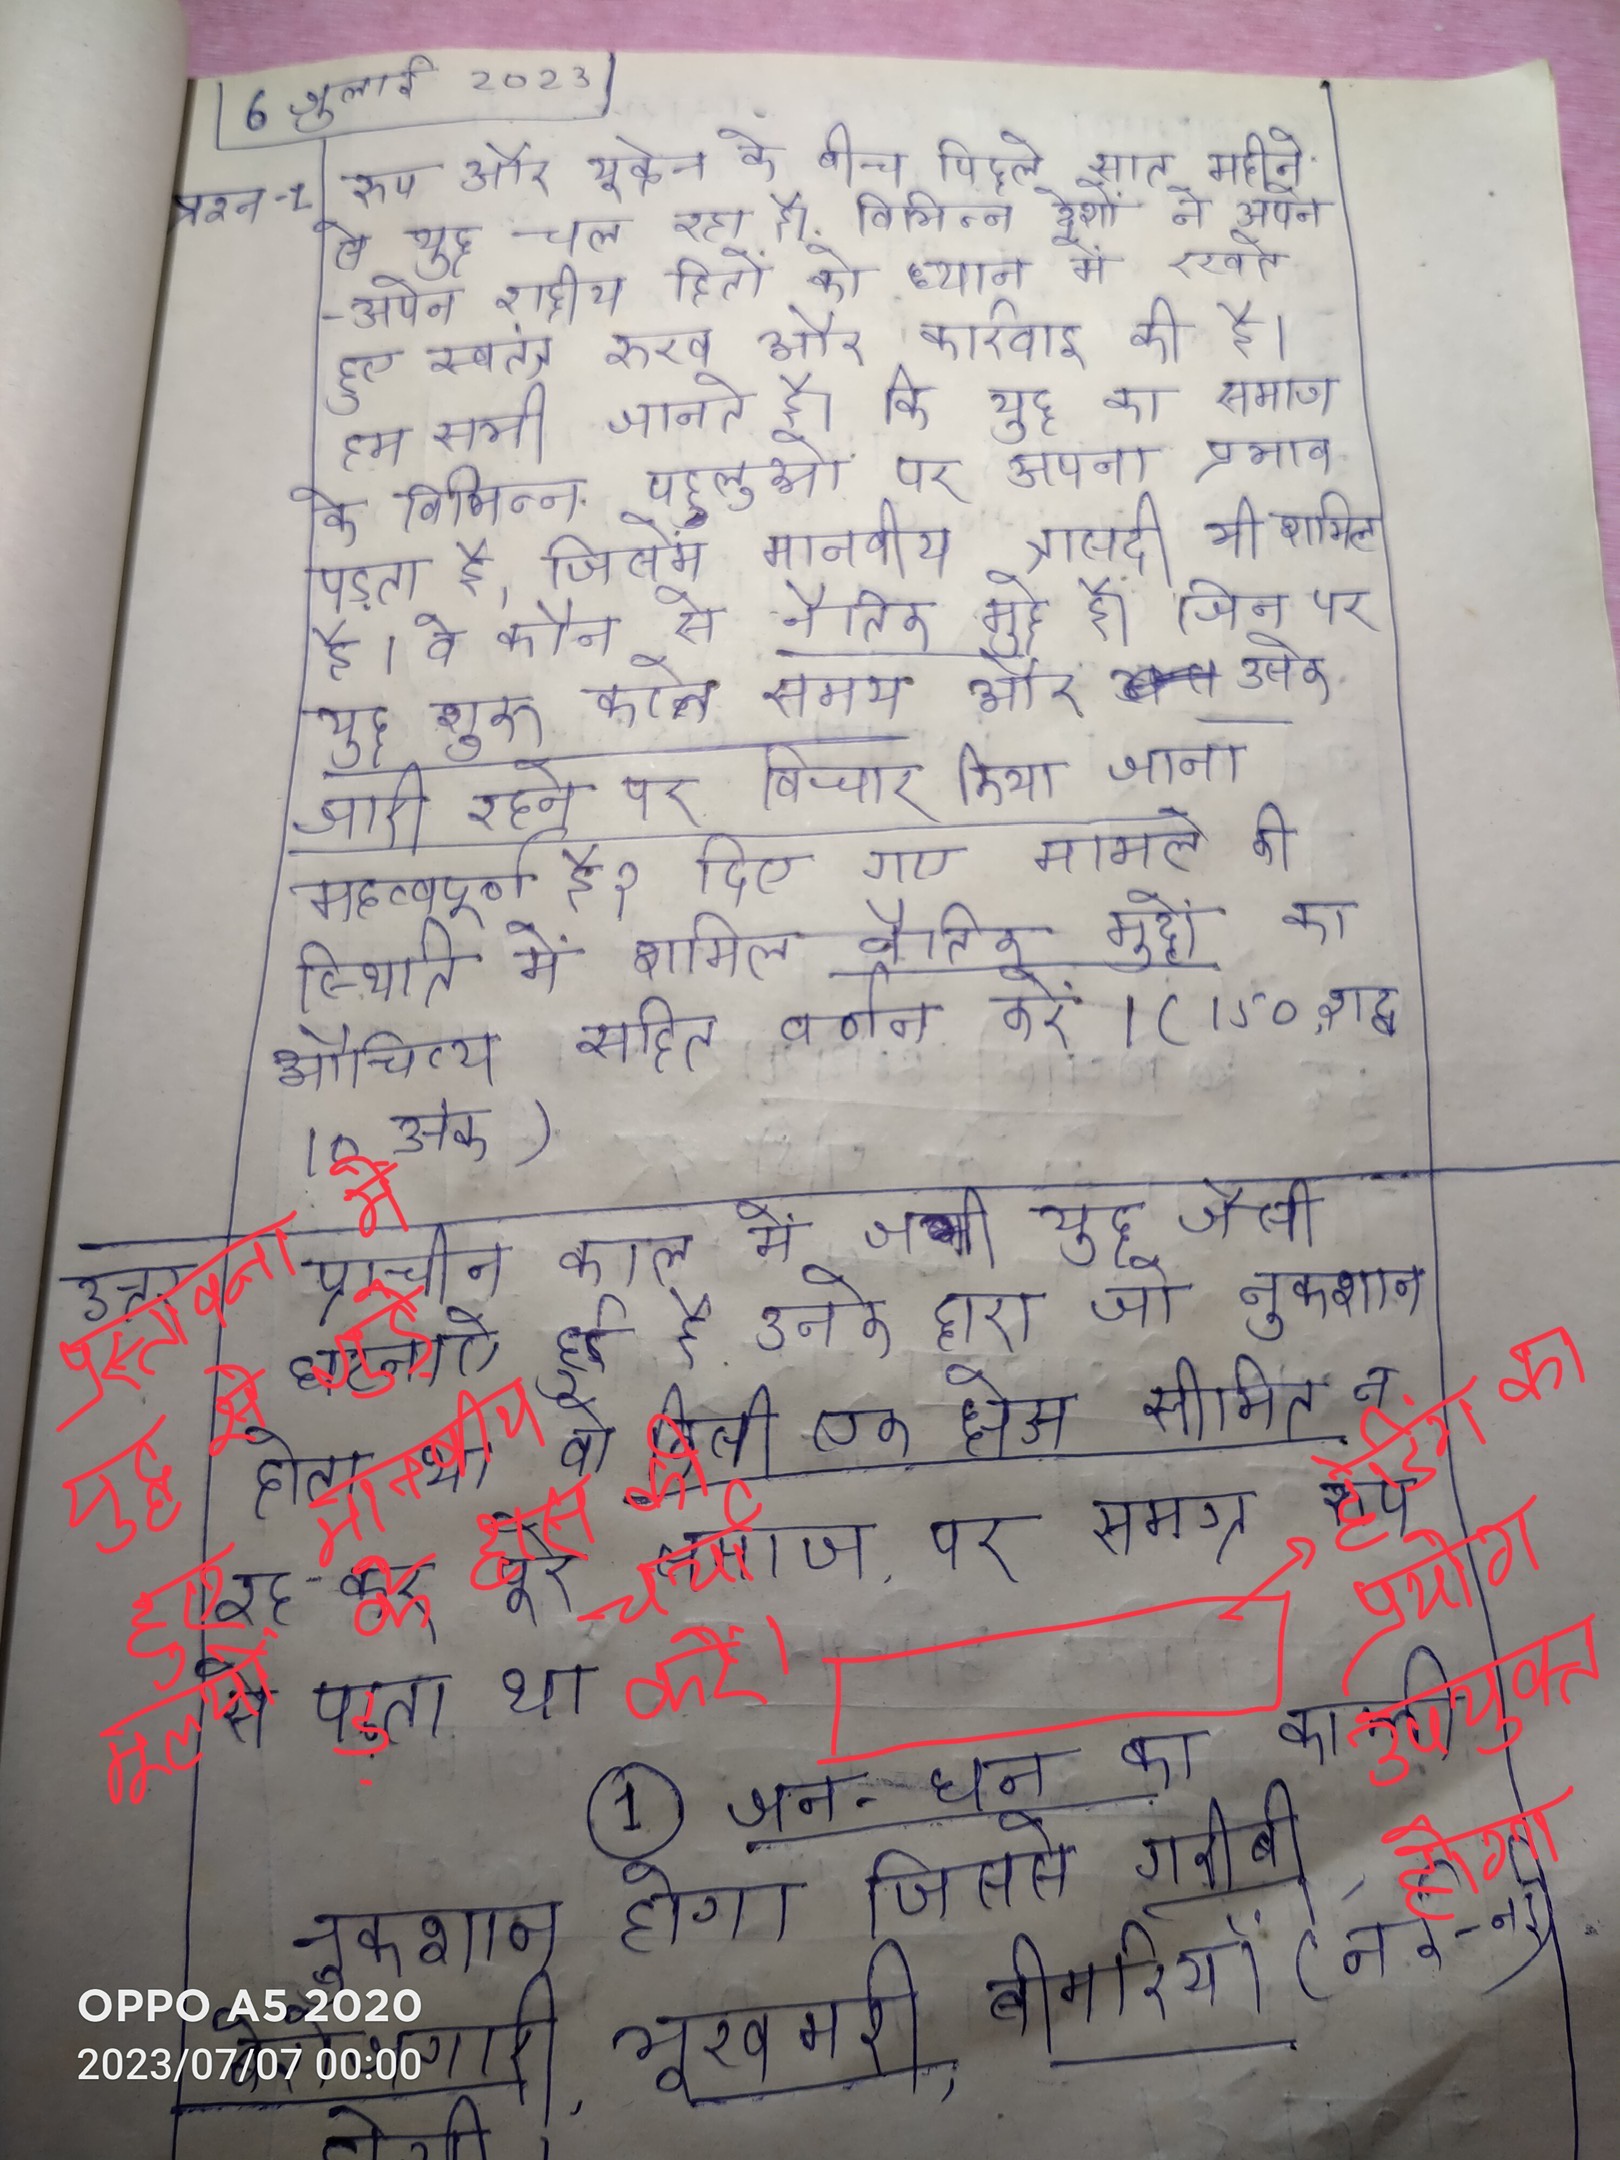 6 जुलाई 2023
प्रश्न-1 रूप और यूक्रेन के बीच पिछले सात महीने
से युद्ध चल रहा है। विभिन्न देशों ने अपने
-अपने राष्ट्रीय हितों को ध्यान में रखते
हुए स्वतंत्र रुख और कार्रवाइ की है।
हम सभी जानते है। कि युद्ध का समाज
के विभिन्न पहलुओं पर अपना प्रभाव
पड़ता है, जिसमें मानवीय त्रासदी भी शामिल
है। वे कौन से नैतिक मुद्दे है। जिन पर
युद्ध शुरू करते समय और उसके
जारी रहने पर विचार किया जाना
महत्वपूर्ण है? दिए गए मामले की
स्थिति में शामिल नैतिक मुद्दों का
औचित्य सहित वर्णन करें। (150 शब्द
10 अंक)
उत्तर प्राचीन काल में जभी युद्ध जैसी
घटनाऐं हुई है उनके द्वारा जो नुकशान
होता था वो किसी एक क्षेत्र सीमित न
रह-कर पूरे समाज पर समग्र रूप
से पड़ता था
① जन-धन का काफी
नुकशान होगा जिससे गरीबी,
बेरोजगारी, भूखमरी, बीमारियाँ (नई-नई)
होगी।
प्रस्तावना में
युद्ध से जुड़े
हुए मानवीय
मूल्यों के ह्रास की
चर्चा
करें।
हेडिंग का
प्रयोग
उपयुक्त
होगा
OPPO A5 2020
2023/07/07 00:00